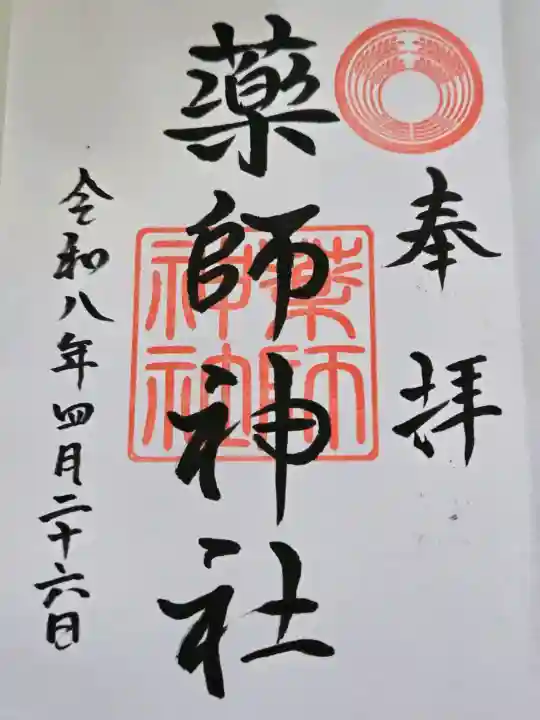 奉拝
薬師神社
薬師
神社
令和八年四月二十六日